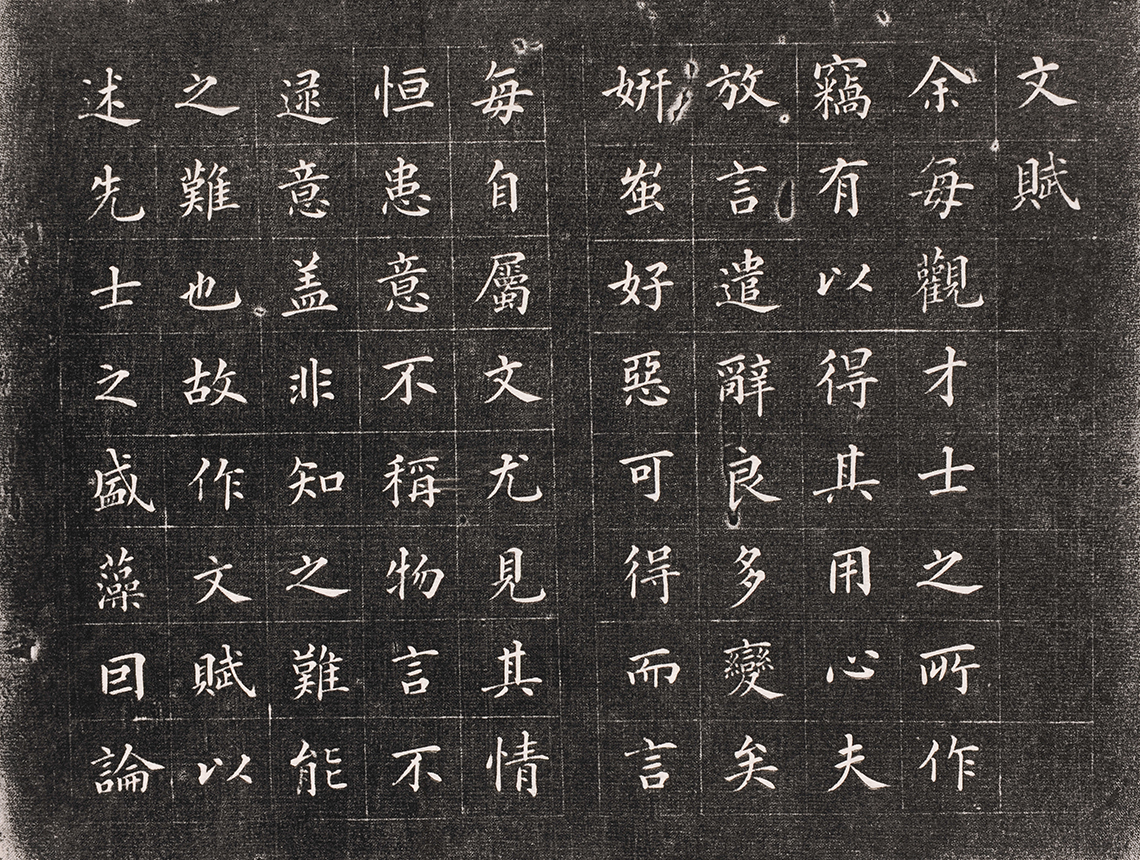 文賦
余每觀才士之所作
竊有以得其用心夫
放言遣辭良多變矣
妍蚩好惡可得而言
每自屬文尤見其情
恒患意不稱物言不
逮意盖非知之難能
之難也故作文賦以
述先士之盛藻因論